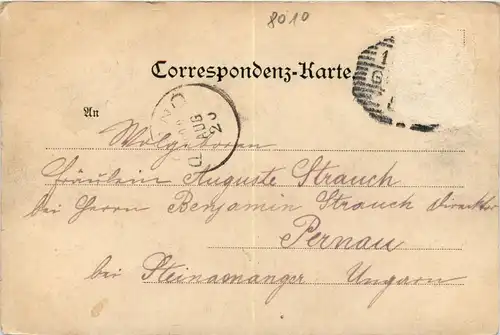 8010
Correspondenz-Karte
An
AUG
Wolgeboren
Fräulein Auguste Strauch
bei Herrn Benjamin Strauch Direktor
Pernau
bei Steinamanger Ungarn